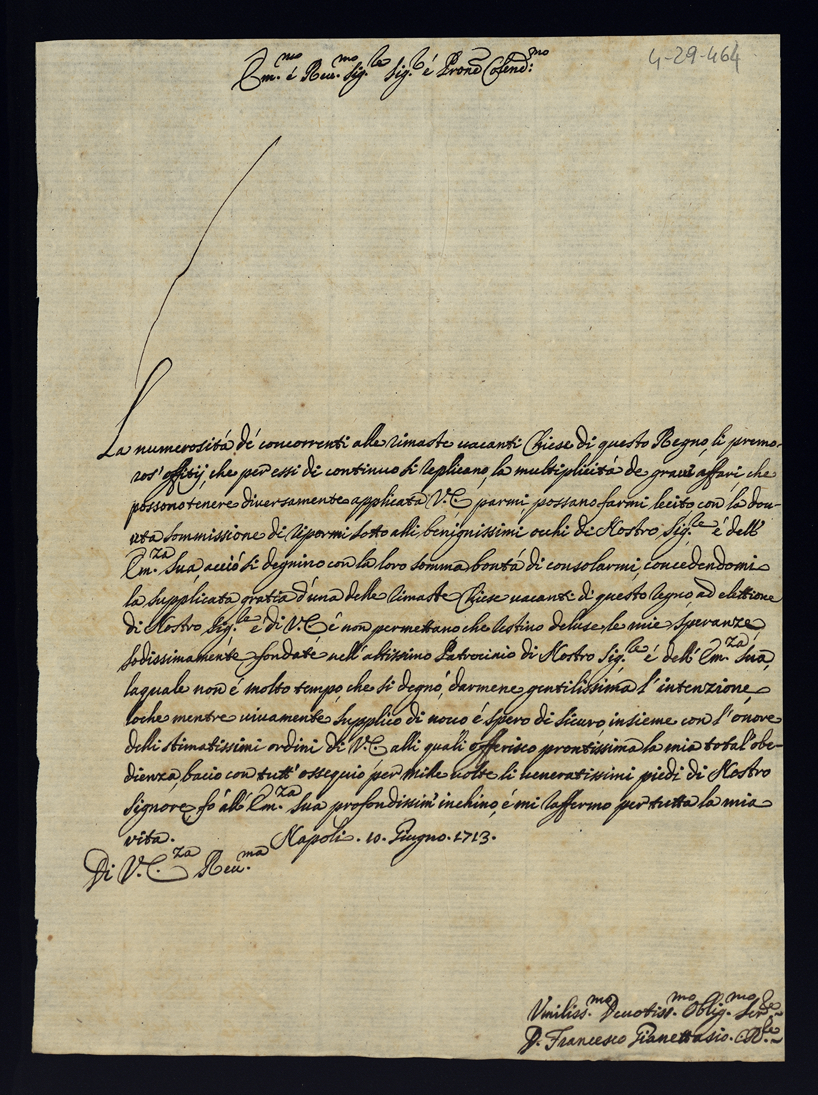 Em.mo é Reu.mo Sig.re Sig.r é Prone Colend:mo
4-29-464
La numerositá dé concorrenti alle rimaste uacanti Chiese di questo Regno, li premo-
ros' offitij, che per essi di continuo si replicano, la multiplicitá de graui affari, che
possono tenere diuersamente applicata V.E. parmi, possano farmi lecito con la dou-
uta sommissione di ripormi sotto alli benignissimi occhi di Nostro Sig.re é dell'
Em.za Sua, acció si degnino con la loro somma bontá di consolarmi, concedendomi
la supplicata gratia d'una delle rimaste Chiese uacanti di questo regno ad elettione
di Nostro Sig.re é di V.E. é non permettano che restino deluse, le mie speranze
sodissimamente fondate nell'altissimo Patrocinio di Nostro Sig.re é dell' Em.za Sua,
laquale non é molto tempo, che si degnó, darmene gentilissima l'intenzione,
loche mentre uiuamente supplico di nouo é spero di sicuro insieme con l'onore
delli stimatissimi ordini di V.E. alli quali offerisco prontissima la mia total' obe-
dienza, bacio con tutt' ossequio per mille uolte li ueneratissimi piedi di Nostro
Signore, fó all' Em.za Sua profondissim' inchino, é mi raffermo per tutta la mia
vita. Napoli. 10. Giugno. 1713.
Di V.E.za Reu.ma
Vmiliss.mo Deuotiss.mo Oblig.mo Ser.re
D. Francesco Gianettasio.